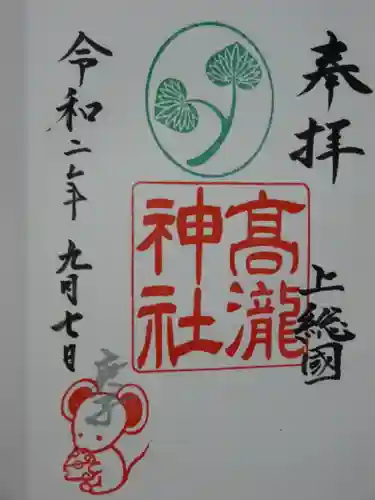 奉拝
上総國
高瀧
神社
令和二年
九月七日
庚子